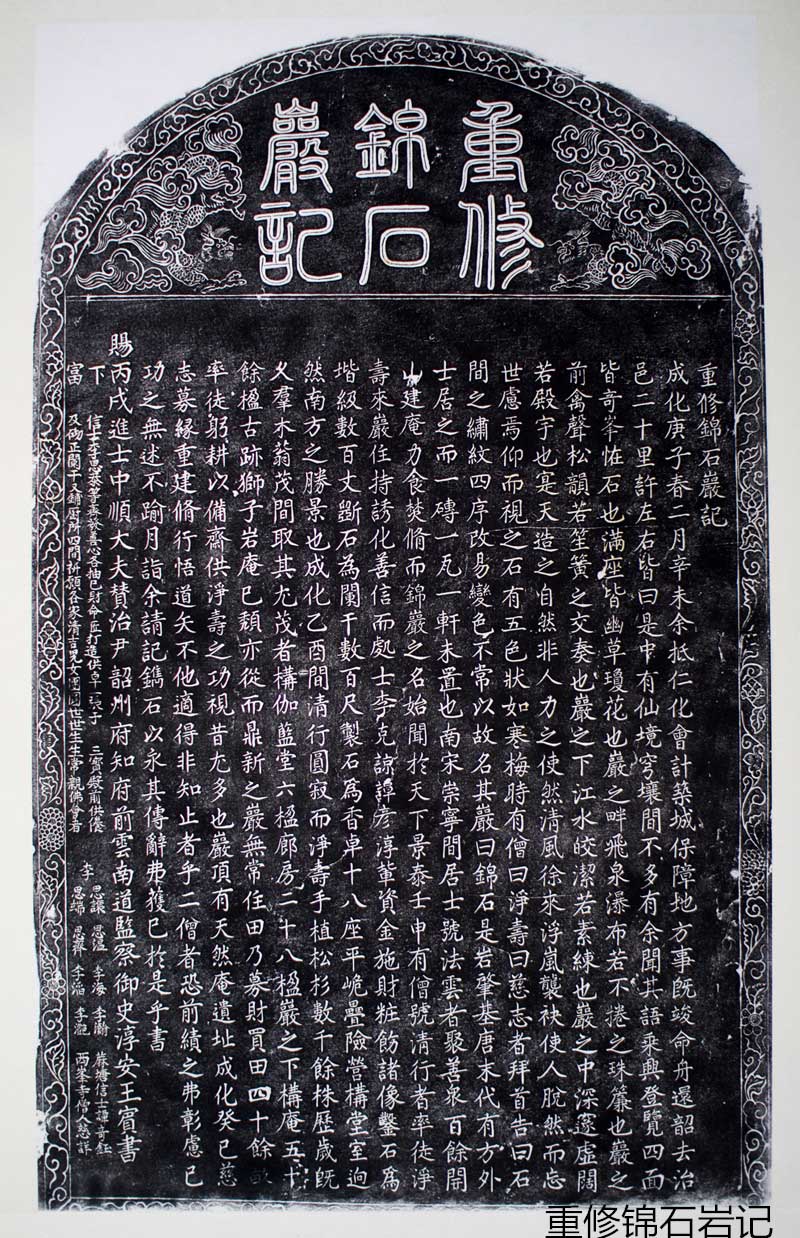 重修
錦石
巖記
重修錦石巖記
成化庚子春二月辛未余抵仁化會計築城保障地方事既竣命舟還韶去治
邑二十里許左右皆曰是中有仙境穹壤間不多有余聞其語乘興登覽四面
皆奇峯恠石也滿座皆幽草瓊花也巖之畔飛泉瀑布若不捲之珠簾也巖之
前禽聲松韻若笙簧之交奏也巖之下江水皎潔若素練也巖之中深邃虛闊
若殿宇也寔天造之自然非人力之使然清風徐來浮嵐襲袂使人脫然而忘
世慮焉仰而視之石有五色狀如寒梅時有僧曰淨壽曰慈志者拜首告曰石
間之繡紋四序改易變色不常以故名其巖曰錦石是岩肇基唐末代有方外
士居之而一磚一瓦一軒未置也南宋崇寧間居士號法雲者聚善衆百餘開
山建庵力食焚脩而錦巖之名始聞於天下景泰壬申有僧號清行者率徒淨
壽來巖住持誘化善信而處士李克諒譚彥淳輩資金施財粧飭諸像鑿石為
堦級數百丈斵石為闌干數百尺製石為香卓十八座平峗疊險營構堂室逈
然南方之勝景也成化乙酉間清行圓寂而淨壽手植松杉數千餘株歷歲既
久羣木蓊茂間取其尤茂者構伽藍堂六楹廊房二十八楹巖之下構庵五十
餘楹古跡獅子岩庵已頹亦從而鼎新之巖無常住田乃募財買田四十餘畝
率徒躬耕以備齋供淨壽之功視昔尤多也巖頂有天然庵遺址成化癸巳慈
志募緣重建脩行悟道矣不他適得非知止者乎二僧者恐前績之弗彰慮已
功之無述不踰月詣余請記鐫石以永其傳辭弗獲已於是乎書
賜丙戌進士中順大夫贊治尹韶州府知府前雲南道監察御史淳安王賓書
下 信士李思泰等齊發善心各抽己財命匠打造供卓一張于 三寶䑓前供養
富 及砌正闌干及靖厨所四間祈願各家清吉兒女團圓世世生生常親佛會者
李 思謙 思溫 李海 李瀚 蔴塘信士譚奇鈺
思端 思齊 李滔 李灔 西峯寺僧人慈詳
重修锦石岩记